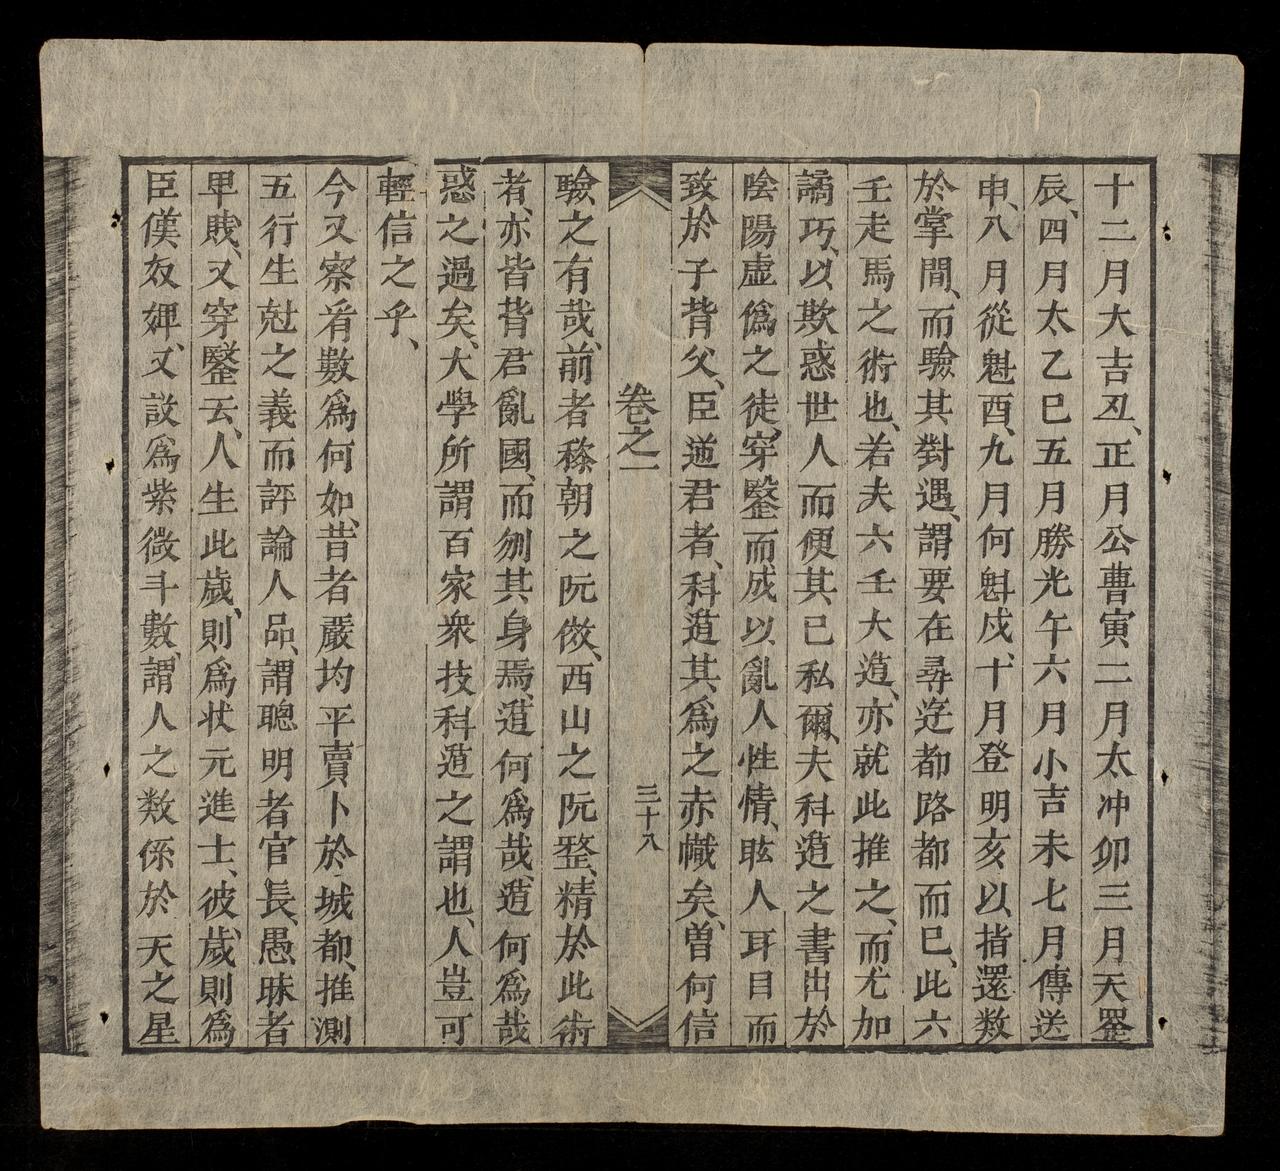 十二月大吉丑、正月公曹寅二月太冲卯三月天罡
辰、四月太乙巳五月勝光午六月小吉未七月傳送
申、八月從魁酉、九月何魁戍、十月登明亥以、指還数
於掌間、而驗其對遇、謂要在尋迯都路都而已、此六
壬走馬之術也、若夫六壬大道、亦就此推之、而尤加
譎巧、以欺惑世人而便其已私爾、夫科道之書出於
陰陽虛僞之徒穿鑿而成以亂人性情、眩人耳目而
致於子背父、臣逆君者、科道其爲之赤幟矣、曽何信
卷之一
三十八
驗之有哉、前者稌朝之阮倣、西山之阮整、精於此術
者、亦皆背君亂國、而刎其身焉、道何爲哉、道何爲哉
惑之過矣、大學所謂百家衆技科道之謂也、人豈可
輕信之乎、
今又察看數爲何如、昔者嚴均平賣卜於城都、推測
五行生尅之義而評論人品、謂聰明者官長、愚昧者
甲賎、又穿鑿云、人生此歲、則爲状元進士、彼歲則爲
臣僕奴婢、又設爲紫微斗數、謂人之数係於天之星